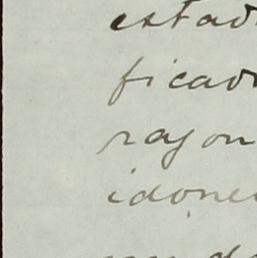 estad
ficad
razon
idone